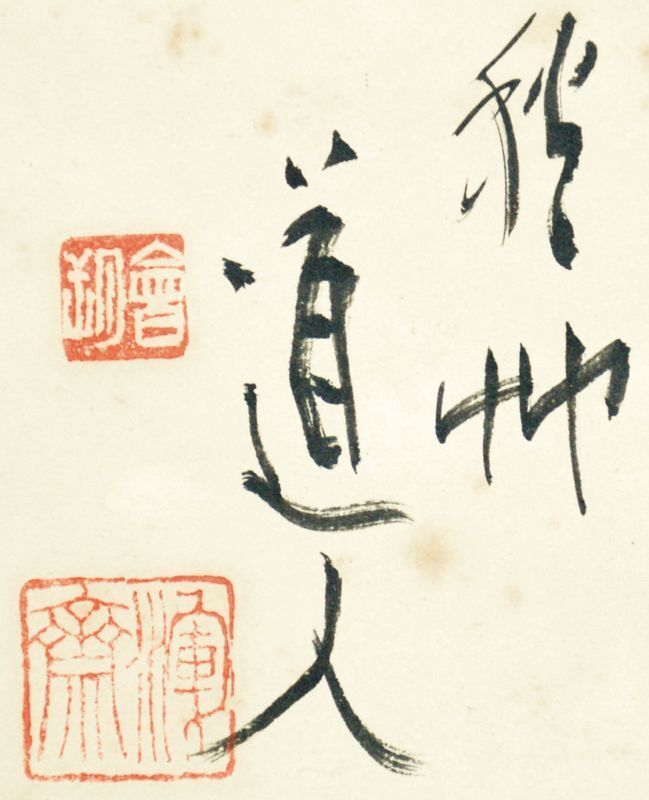 秋艸
道人
會朔
渾齋